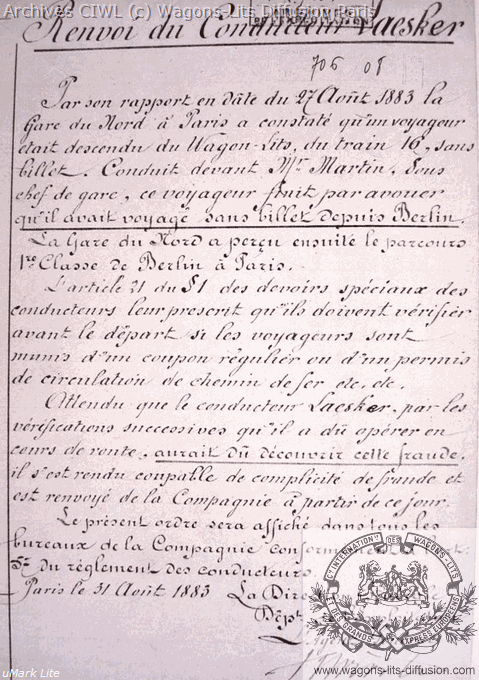 Archives CIWL (c) Wagons-Lits Diffusion Paris
Renvoi du Conducteur Laesker
706 08
Par son rapport en date du 27 Août 1883 la
Gare du Nord à Paris a constaté qu'un voyageur
était descendu du Wagon-Lits, du train 16, sans
billet. Conduit devant Mr Martin, Sous
chef de gare, ce voyageur finit par avouer
qu'il avait voyagé sans billet depuis Berlin.
La Gare du Nord a perçu ensuite le parcours
1re Classe de Berlin à Paris.
L'article 21 du §1 des devoirs spéciaux des
conducteurs leur prescrit qu'ils doivent vérifier
avant le départ si les voyageurs sont
munis d'un coupon régulier ou d'un permis
de circulation de chemin de fer etc. etc.
Attendu que le conducteur Laesker, par les
vérifications successives qu'il a dû opérer en
cours de route, aurait dû découvrir cette fraude,
il s'est rendu coupable de complicité de fraude et
est renvoyé de la Compagnie à partir de ce jour.
Le présent ordre sera affiché dans tous les
bureaux de la Compagnie
du règlement des conducteurs.
Paris le 31 Août 1883 La
Dépt
Cie INTERNATIONALE DES WAGONS-LITS
ET DES GRANDS EXPRESS EUROPÉENS
www.wagons-lits-diffusion.com
uMark Lite